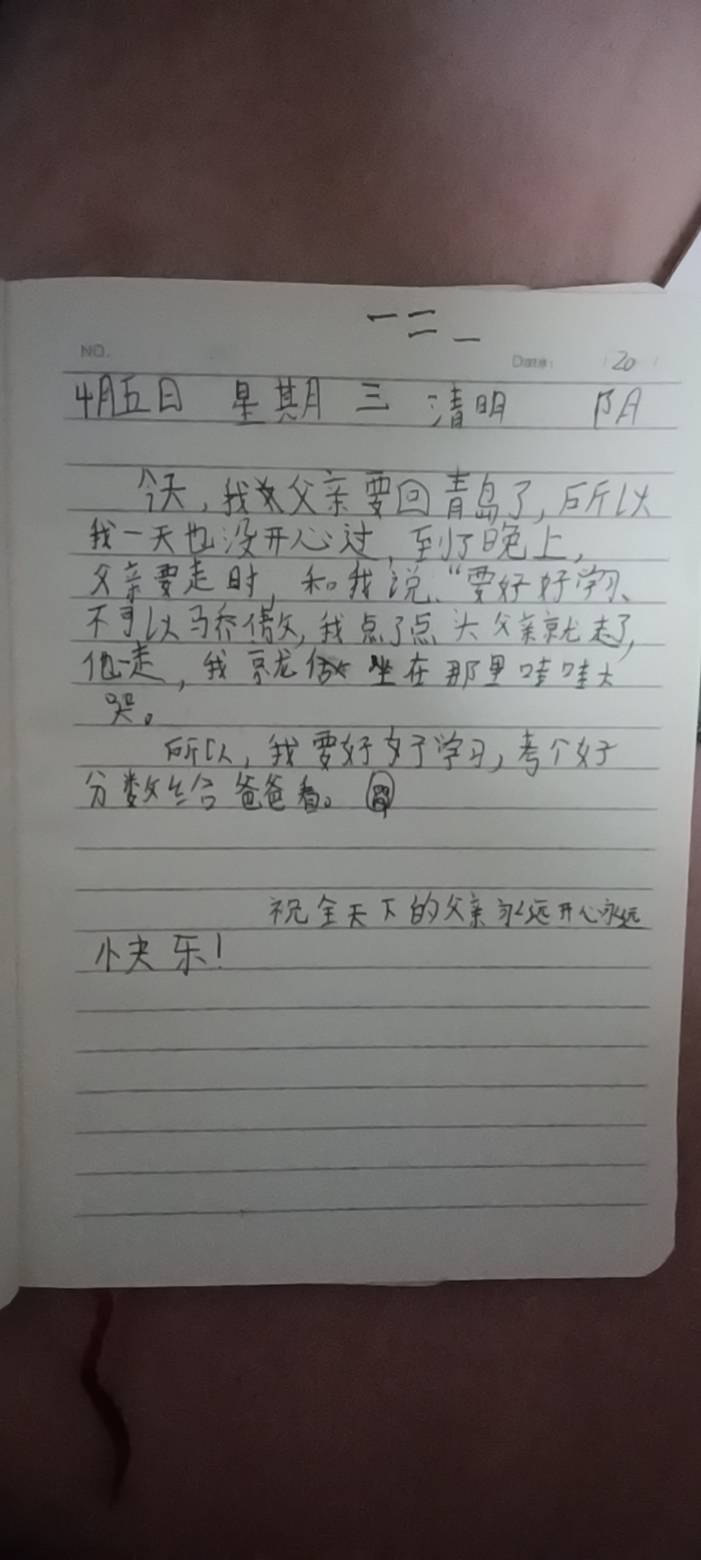 一 二 一
NO.
Date: 20
4月五日 星期三 清明 阴
今天,我父亲要回青岛了,所以
我一天也没开心过,到了晚上,
父亲要走时,和我说、“要好好学习、
不可以骄傲,我点了点头父亲就走了,
他一走,我就坐在那里哇哇大
哭。
所以,我要好好学习,考个好
分数给爸爸看。
祝全天下的父亲永远开心永远
快乐!